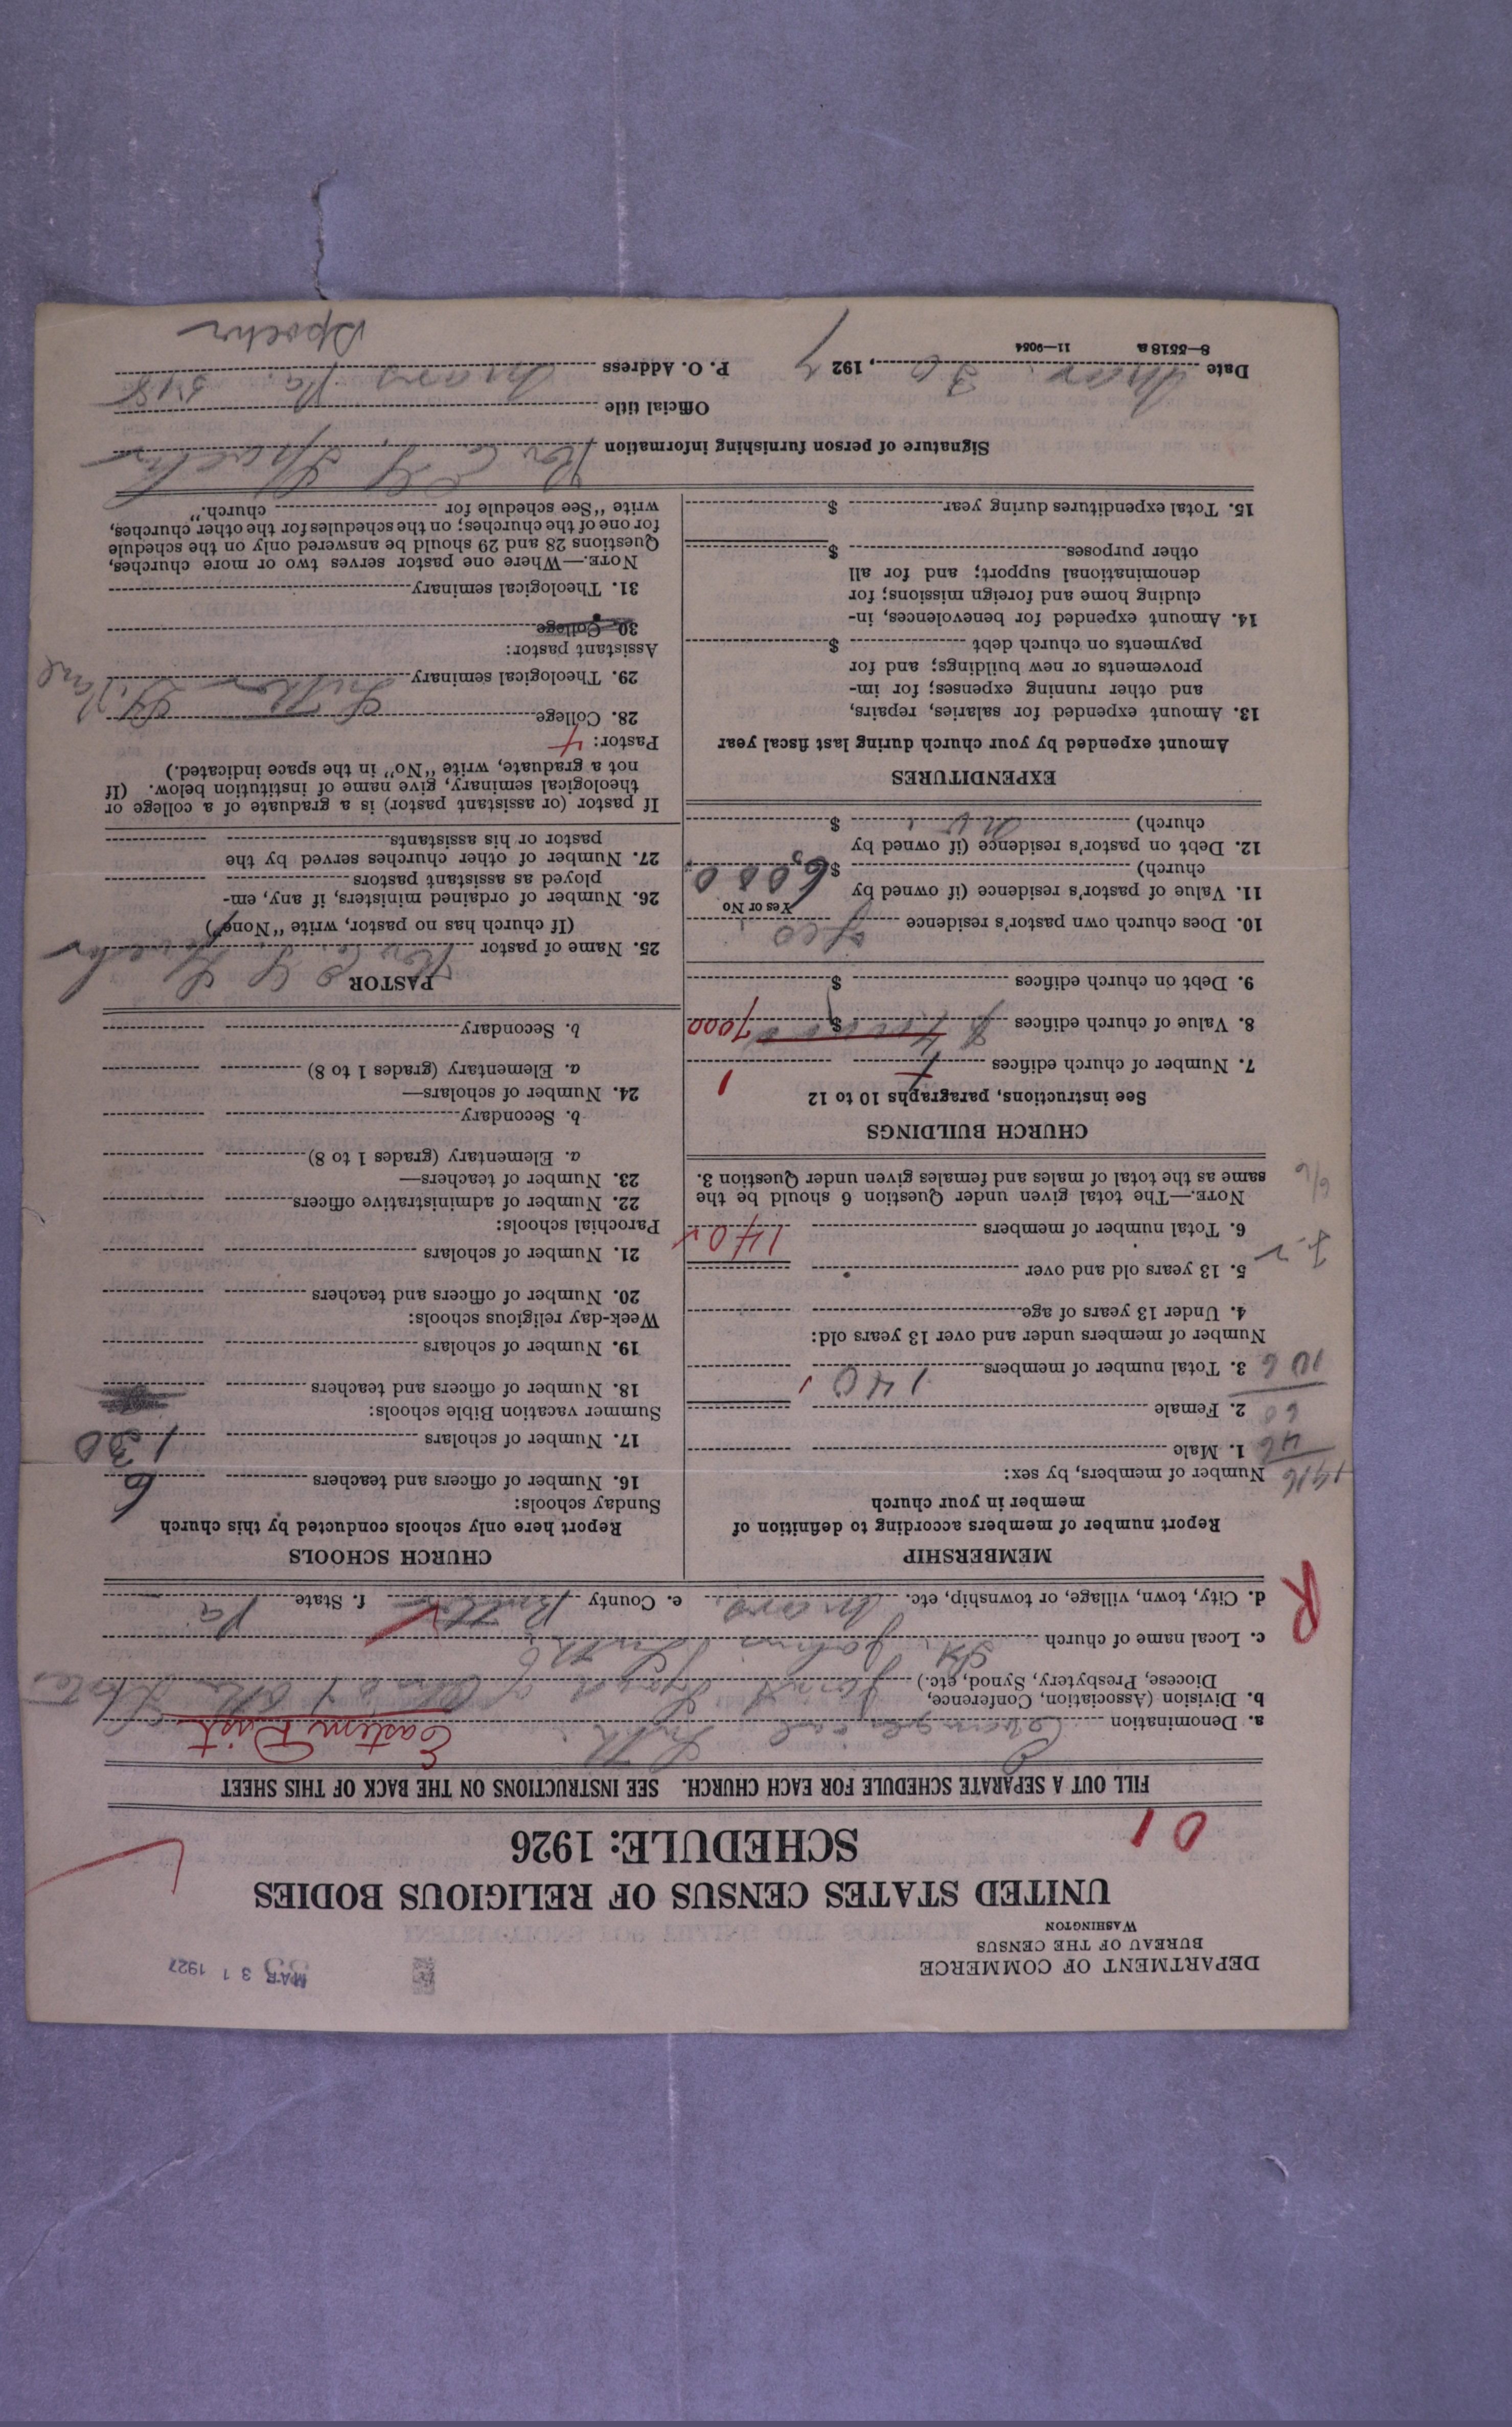 DEPARTMENT OF COMMERCE
BUREAU OF THE CENSUS
WASHINGTON
MAR 31 1927
UNITED STATES CENSUS OF RELIGIOUS BODIES
SCHEDULE: 1926
01
FILL OUT A SEPARATE SCHEDULE FOR EACH CHURCH. SEE INSTRUCTIONS ON THE BACK OF THIS SHEET
a. Denomination Evangelical Luth Eastern Dist
b. Division (Association, Conference,
Diocese, Presbytery, Synod, etc.) Joint Synod of Ohio & Other States
c. Local name of church St. Johns Luth
d. City, town, village, or township, etc. Mars e. County Butler f. State Pa
R
MEMBERSHIP
Report number of members according to definition of
member in your church
1916
Number of members, by sex:
1. Male 46
2. Female 60
3. Total number of members 140 106
Number of members under and over 13 years old:
4. Under 13 years of age
5. 13 years old and over
6. Total number of members 140
NOTE.—The total given under Question 6 should be the
same as the total of males and females given under Question 3.
CHURCH BUILDINGS
See instructions, paragraphs 10 to 12
7. Number of church edifices 1
8. Value of church edifices $ 7000
9. Debt on church edifices $
10. Does church own pastor's residence yes
Yes or No
11. Value of pastor's residence (if owned by
church) $ 6,000
12. Debt on pastor's residence (if owned by
church) $
EXPENDITURES
Amount expended by your church during last fiscal year
13. Amount expended for salaries, repairs,
and other running expenses; for im-
provements or new buildings; and for
payments on church debt $
14. Amount expended for benevolences, in-
cluding home and foreign missions; for
denominational support; and for all
other purposes $
15. Total expenditures during year $
CHURCH SCHOOLS
Report here only schools conducted by this church
Sunday schools:
16. Number of officers and teachers 6
17. Number of scholars 130
Summer vacation Bible schools:
18. Number of officers and teachers
19. Number of scholars
Week-day religious schools:
20. Number of officers and teachers
21. Number of scholars
Parochial schools:
22. Number of administrative officers
23. Number of teachers—
a. Elementary (grades 1 to 8)
b. Secondary
24. Number of scholars—
a. Elementary (grades 1 to 8)
b. Secondary
PASTOR
25. Name of pastor Rev
(If church has no pastor, write "None")
26. Number of ordained ministers, if any, em-
ployed as assistant pastors
27. Number of other churches served by the
pastor or his assistants
If pastor (or assistant pastor) is a graduate of a college or
theological seminary, give name of institution below. (If
not a graduate, write "No" in the space indicated.)
Pastor: 4
28. College
29. Theological seminary Luther St. Paul
Assistant pastor:
30. College
31. Theological seminary
NOTE.—Where one pastor serves two or more churches,
Questions 28 and 29 should be answered only on the schedule
for one of the churches; on the schedules for the other churches,
write "See schedule for church."
Signature of person furnishing information Rev
Official title
Date Mar. 30, 1927 P. O. Address Mars Pa.
8—5518 a 11—9054